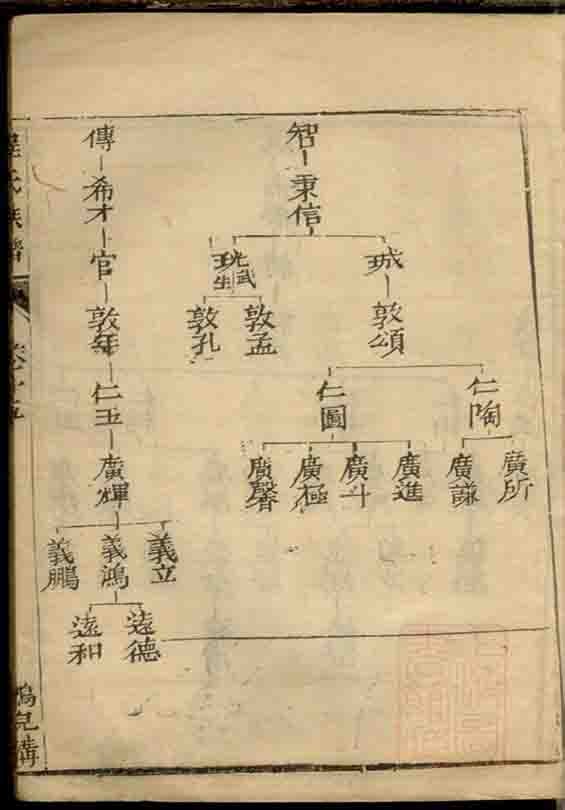 智
秉信
珹
敦頌
仁陶
廣所
廣謙
仁圖
廣進
廣斗
廣極
廣馨
珖武
生
敦孟
敦孔
傳
希才
官
敦年
仁玉
廣輝
義立
義鴻
遠德
遠和
義鵬
氏族譜